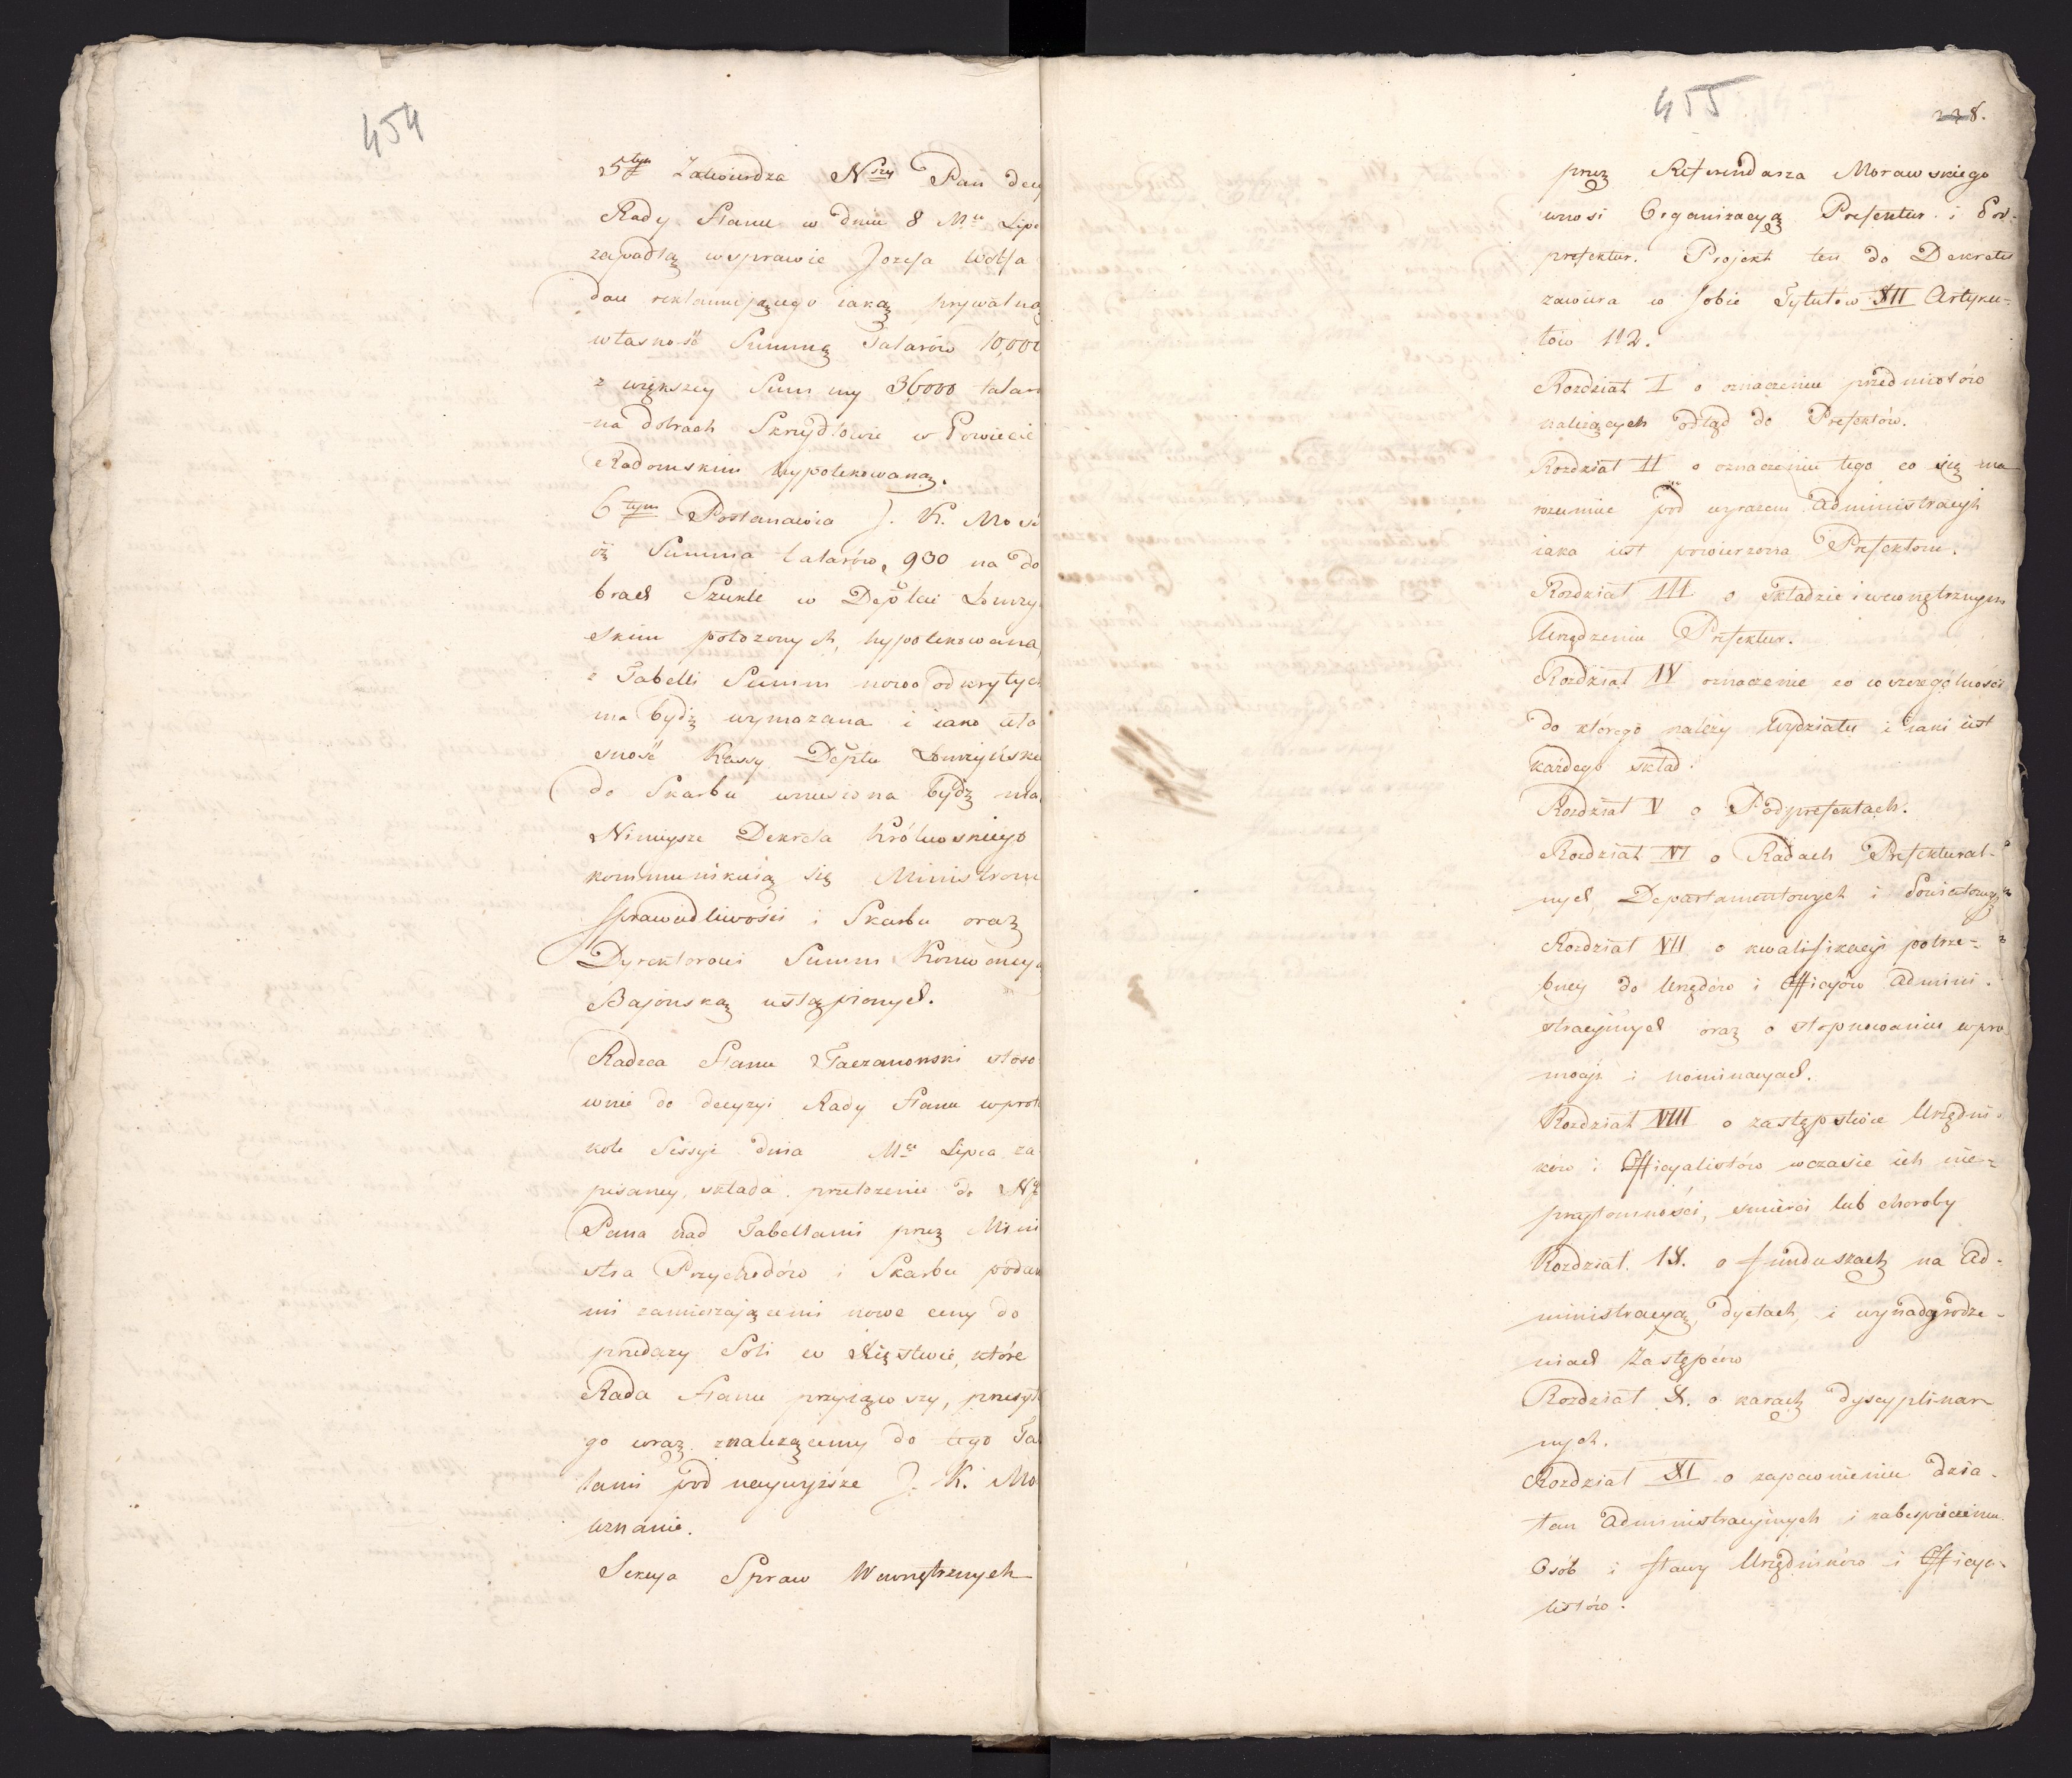 454
5tym Zatwierdza Nszy Pan decy
Rady Stanu w dniu 8 Mca Lipc
zapadłą w sprawie Jozefa Wolfa
dau reklamującego iaką prywatną
własność Summę Talarów 10,000
z większey Summy 36000 talar
na dobrach Skrzydłowie w Powiecie
Radomskim hypotekowaną.
6tym Postanawia J. K. Mość
iż Summa talarów 930 na do
brach Szukle w Deptcie Łomżyń
skim położonych, hypotekowana,
z Tabelli Summ nowo odkrytych
ma bydź wymazana i iako wła
sność Kassy Deptu Łomżyńskie
do Skarbu wniesiona bydź ma.
Ninieysze Dekreta Królewskiego
kommunikuią się Ministrom
Sprawiedliwości i Skarbu oraz
Dyrektorowi Summ Konwencyą
Bajońską ustąpionych.
Radzca Stanu Taczanowski stoso
wnie do decyzyi Rady Stanu w proto
kole Sessyi dnia Mca Lipca za
pisaney, składa przełożenie do Ngo
Pana nad Tabellami przez Mini
stra Przychodów i Skarbu podane
mi zamierzającemi nowe ceny do
przedaży Soli w Xięstwie, które
Rada Stanu przyiąwszy, przesył
go wraz z należącemy do tego Ta
lami pod naywyższe J. K. Mo
uznanie.
Sekcya Spraw Wewnętrznych
455
228.
przez Referendarza Morawskiego
wnosi Organizacyą Prefektur i Pod-
prefektur. Projekt ten do Dekretu
zawiera w sobie Tytułów XII Artyku-
łów 112.
Rozdział I o oznaczeniu przedmiotów
należących odtąd do Prefektów.
Rozdział II o oznaczeniu tego co się ma
rozumieć pod wyrazem Administracyi
iaka iest powierzona Prefektom.
Rozdział III o Składzie i wewnętrznym
Urządzeniu Prefektur.
Rozdział IV oznaczenie co w szczególności
do którego należy Wydziału i iaki iest
każdego skład.
Rozdział V o Podprefektach.
Rozdział VI o Radach Prefektural-
nych Departamentowych i Powiatowych
Rozdział VII o kwalifikacyi potrze-
bney do Urzędów i Officyów Admini-
stracyinych oraz o stopniowaniu w pro
mocyi i nominacyach.
Rozdział VIII o zastępstwie Urzędni-
ków i Officyalistów w czasie ich nie-
przytomności, śmierci lub choroby
Rozdział. IX. o funduszach na Ad-
ministracyą, dyetach, i wynadgrodze-
niach Zastępców
Rozdział X. o karach dyscyplinar
nych.
Rozdział XI o zapewnieniu dzia-
łań Administracyinych i zabespieczeniu
Osób i sławy Urzędników i Officya-
listów.